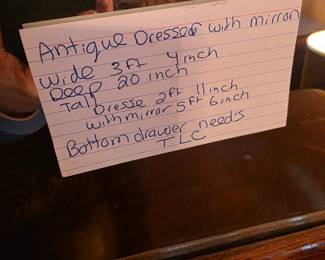 Antique Dresser with mirror
Wide 3ft 4inch
Deep 20 inch
Tall
Dresse 2ft 11inch
with mirror 5ft 6inch
Bottom drawer needs
TLC